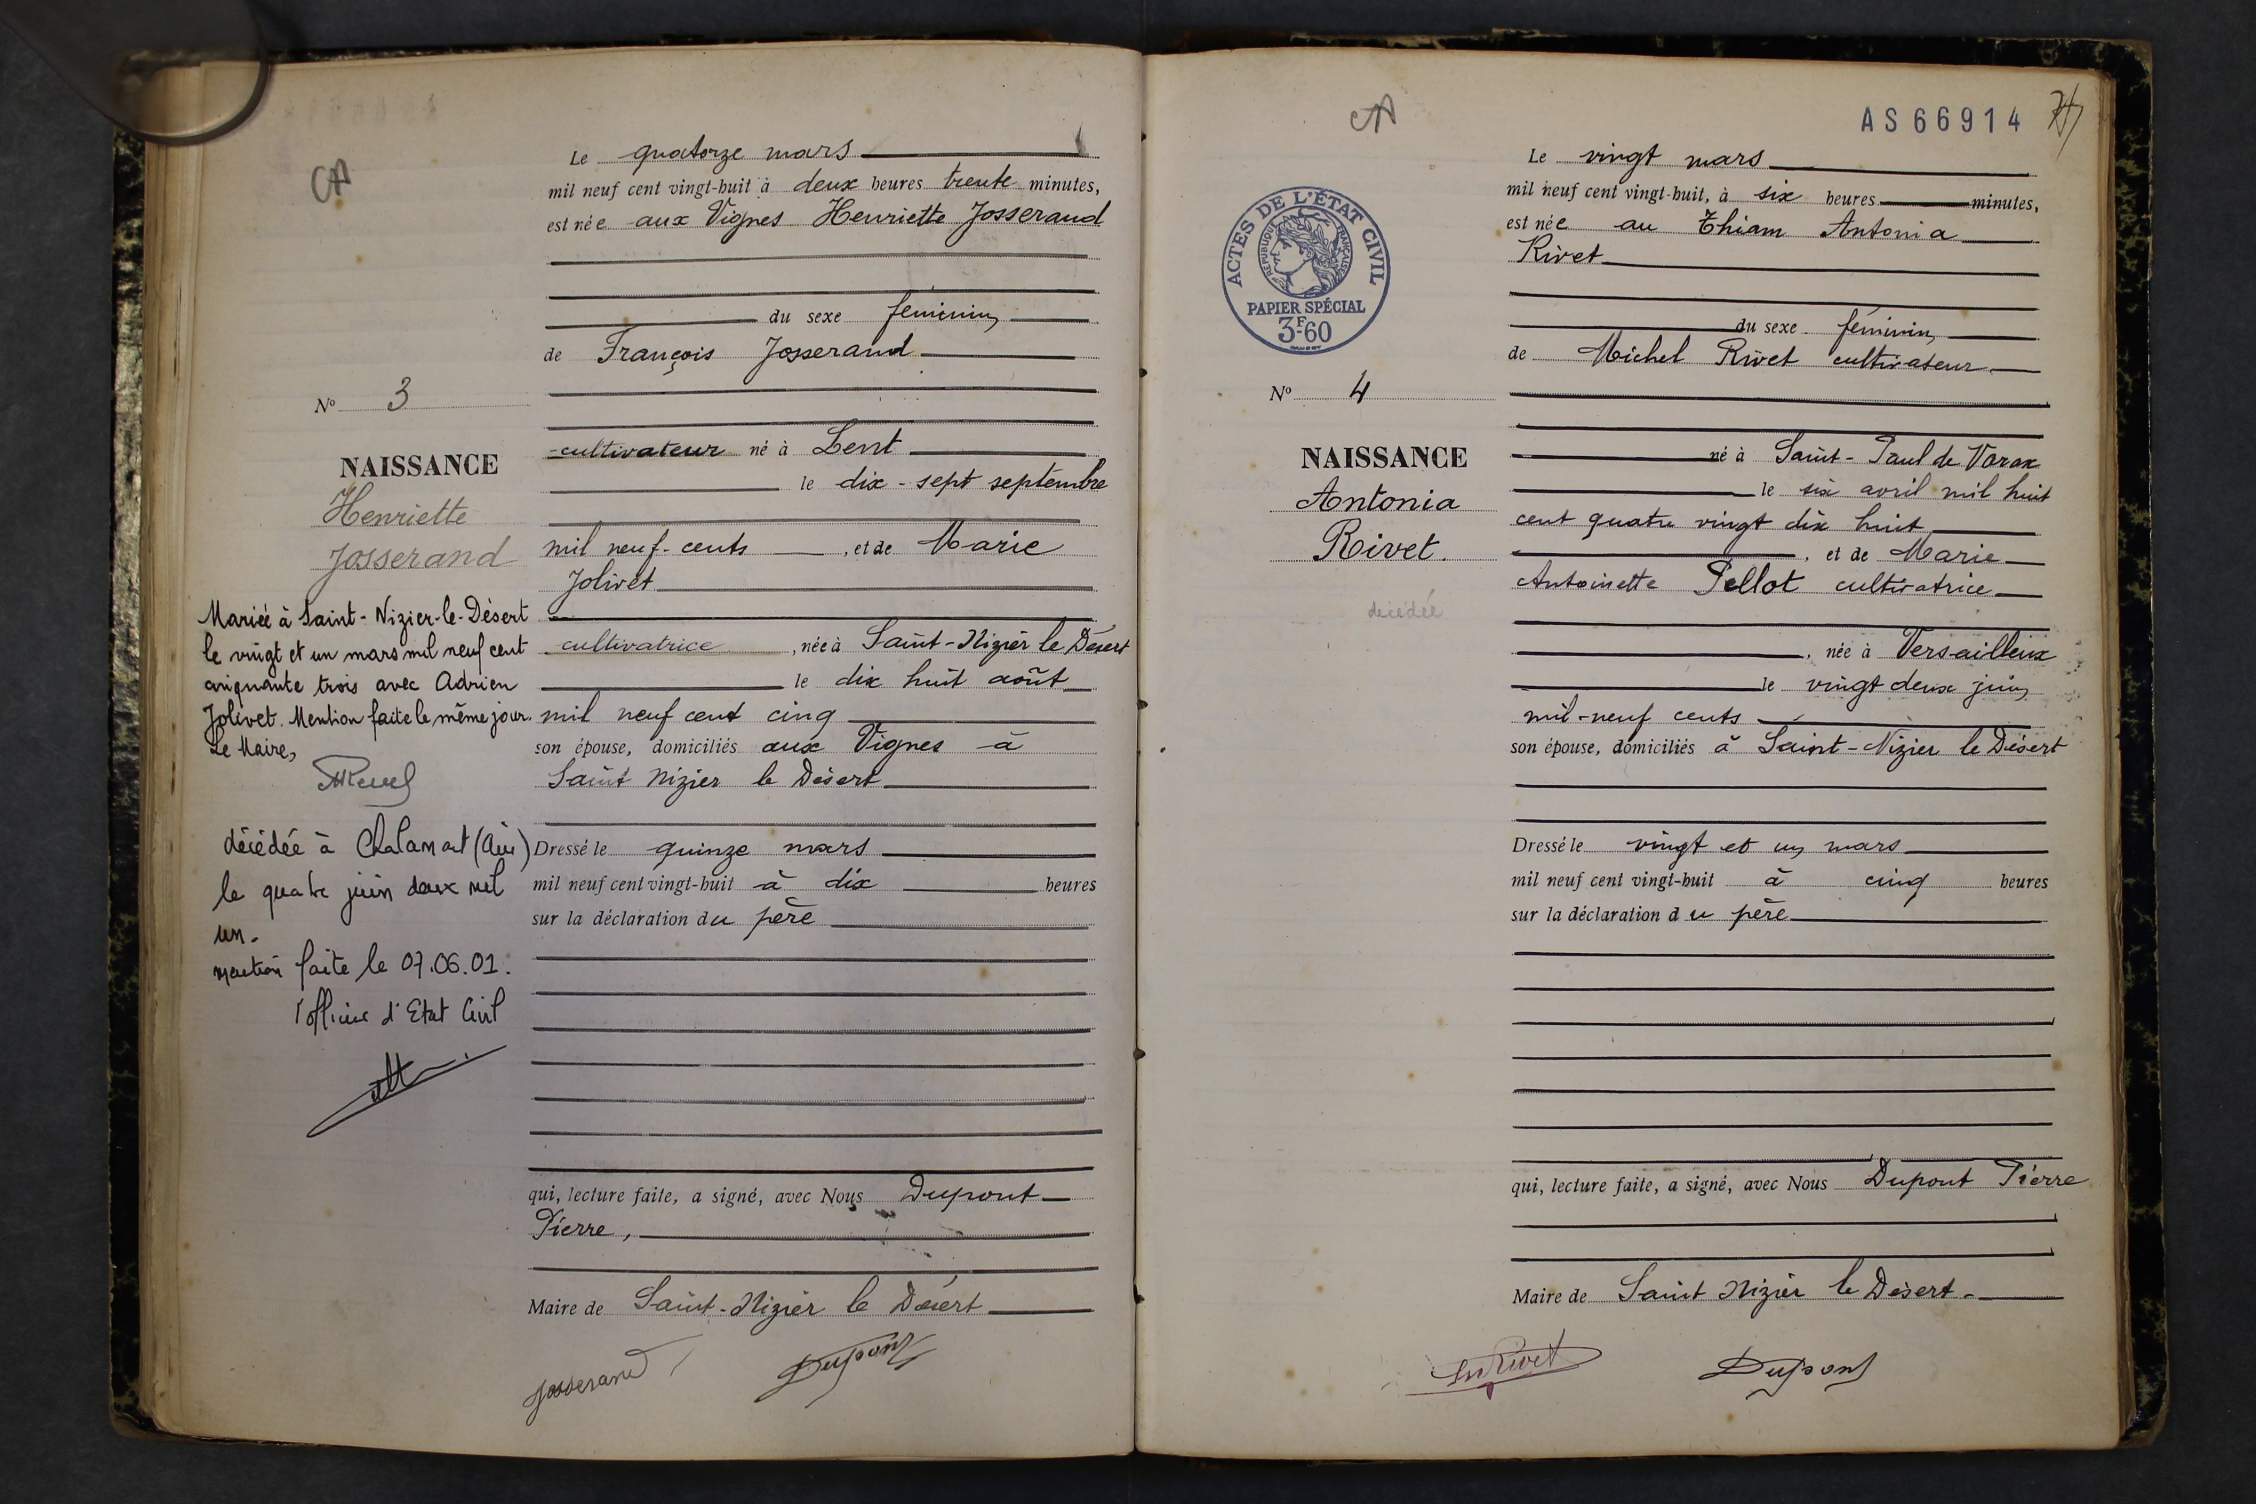 Le quatorze mars
mil neuf cent vingt-huit à deux heures trente minutes,
est née aux Vignes Henriette Josserand
du sexe féminin
de François Josserand
cultivateur né à Lent
le dix-sept septembre
mil neuf-cents, et de Marie
Jolivet
cultivatrice, née à Saint-Nizier le Désert
le dix huit août
mil neuf cent cinq
son épouse, domiciliés aux Vignes à
Saint Nizier le Désert
Dressé le quinze mars
mil neuf cent vingt-huit à dix heures
sur la déclaration du père
qui, lecture faite, a signé, avec Nous Dupont
Pierre,
Maire de Saint-Nizier le Désert
Josserand Dupont
No 3
NAISSANCE
Henriette
Josserand
Mariée à Saint-Nizier-le-Désert
le vingt et un mars mil neuf cent
cinquante trois avec Adrien
Jolivet. Mention faite le même jour.
Le Maire,
décédée à Chalamont (Ain)
le quatre juin deux mil
un.
mention faite le 07.06.01.
l'officier d'Etat Civil
AS66914
Le vingt mars
mil neuf cent vingt-huit, à six heures minutes,
est née au Thiam Antonia
Rivet
du sexe féminin
de Michel Rivet cultivateur
né à Saint-Paul de Varax
le six avril mil huit
cent quatre vingt dix huit
, et de Marie
Antoinette Pellot cultivatrice
, née à Versailleux
le vingt deux juin
mil-neuf cents
son épouse, domiciliés à Saint-Nizier le Désert
Dressé le vingt et un mars
mil neuf cent vingt-huit à cinq heures
sur la déclaration du père
qui, lecture faite, a signé, avec Nous Dupont Pierre
Maire de Saint Nizier le Désert.
Rivet Dupont
ACTES DE L'ÉTAT CIVIL
RÉPUBLIQUE FRANÇAISE
PAPIER SPÉCIAL
3F60
No 4
NAISSANCE
Antonia
Rivet.
décédée